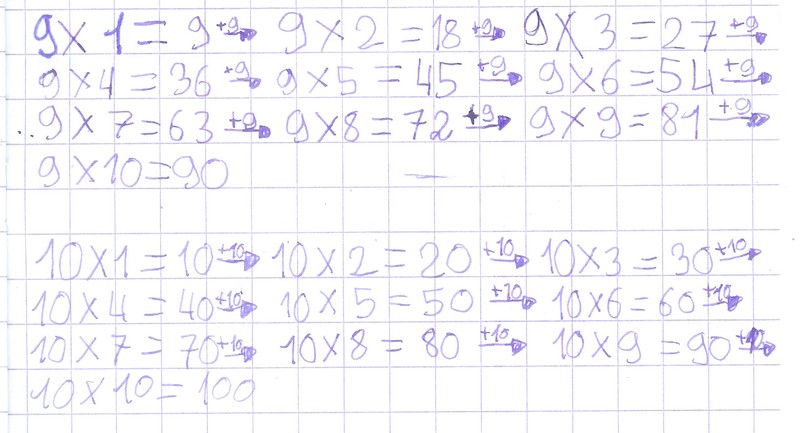 9 x 1 = 9 +9→ 9 x 2 = 18 +9→ 9 x 3 = 27 +9→
9 x 4 = 36 +9→ 9 x 5 = 45 +9→ 9 x 6 = 54 +9→
9 x 7 = 63 +9→ 9 x 8 = 72 +9→ 9 x 9 = 81 +9→
9 x 10 = 90
10 x 1 = 10 +10→ 10 x 2 = 20 +10→ 10 x 3 = 30 +10→
10 x 4 = 40 +10→ 10 x 5 = 50 +10→ 10 x 6 = 60 +10→
10 x 7 = 70 +10→ 10 x 8 = 80 +10→ 10 x 9 = 90 +10→
10 x 10 = 100